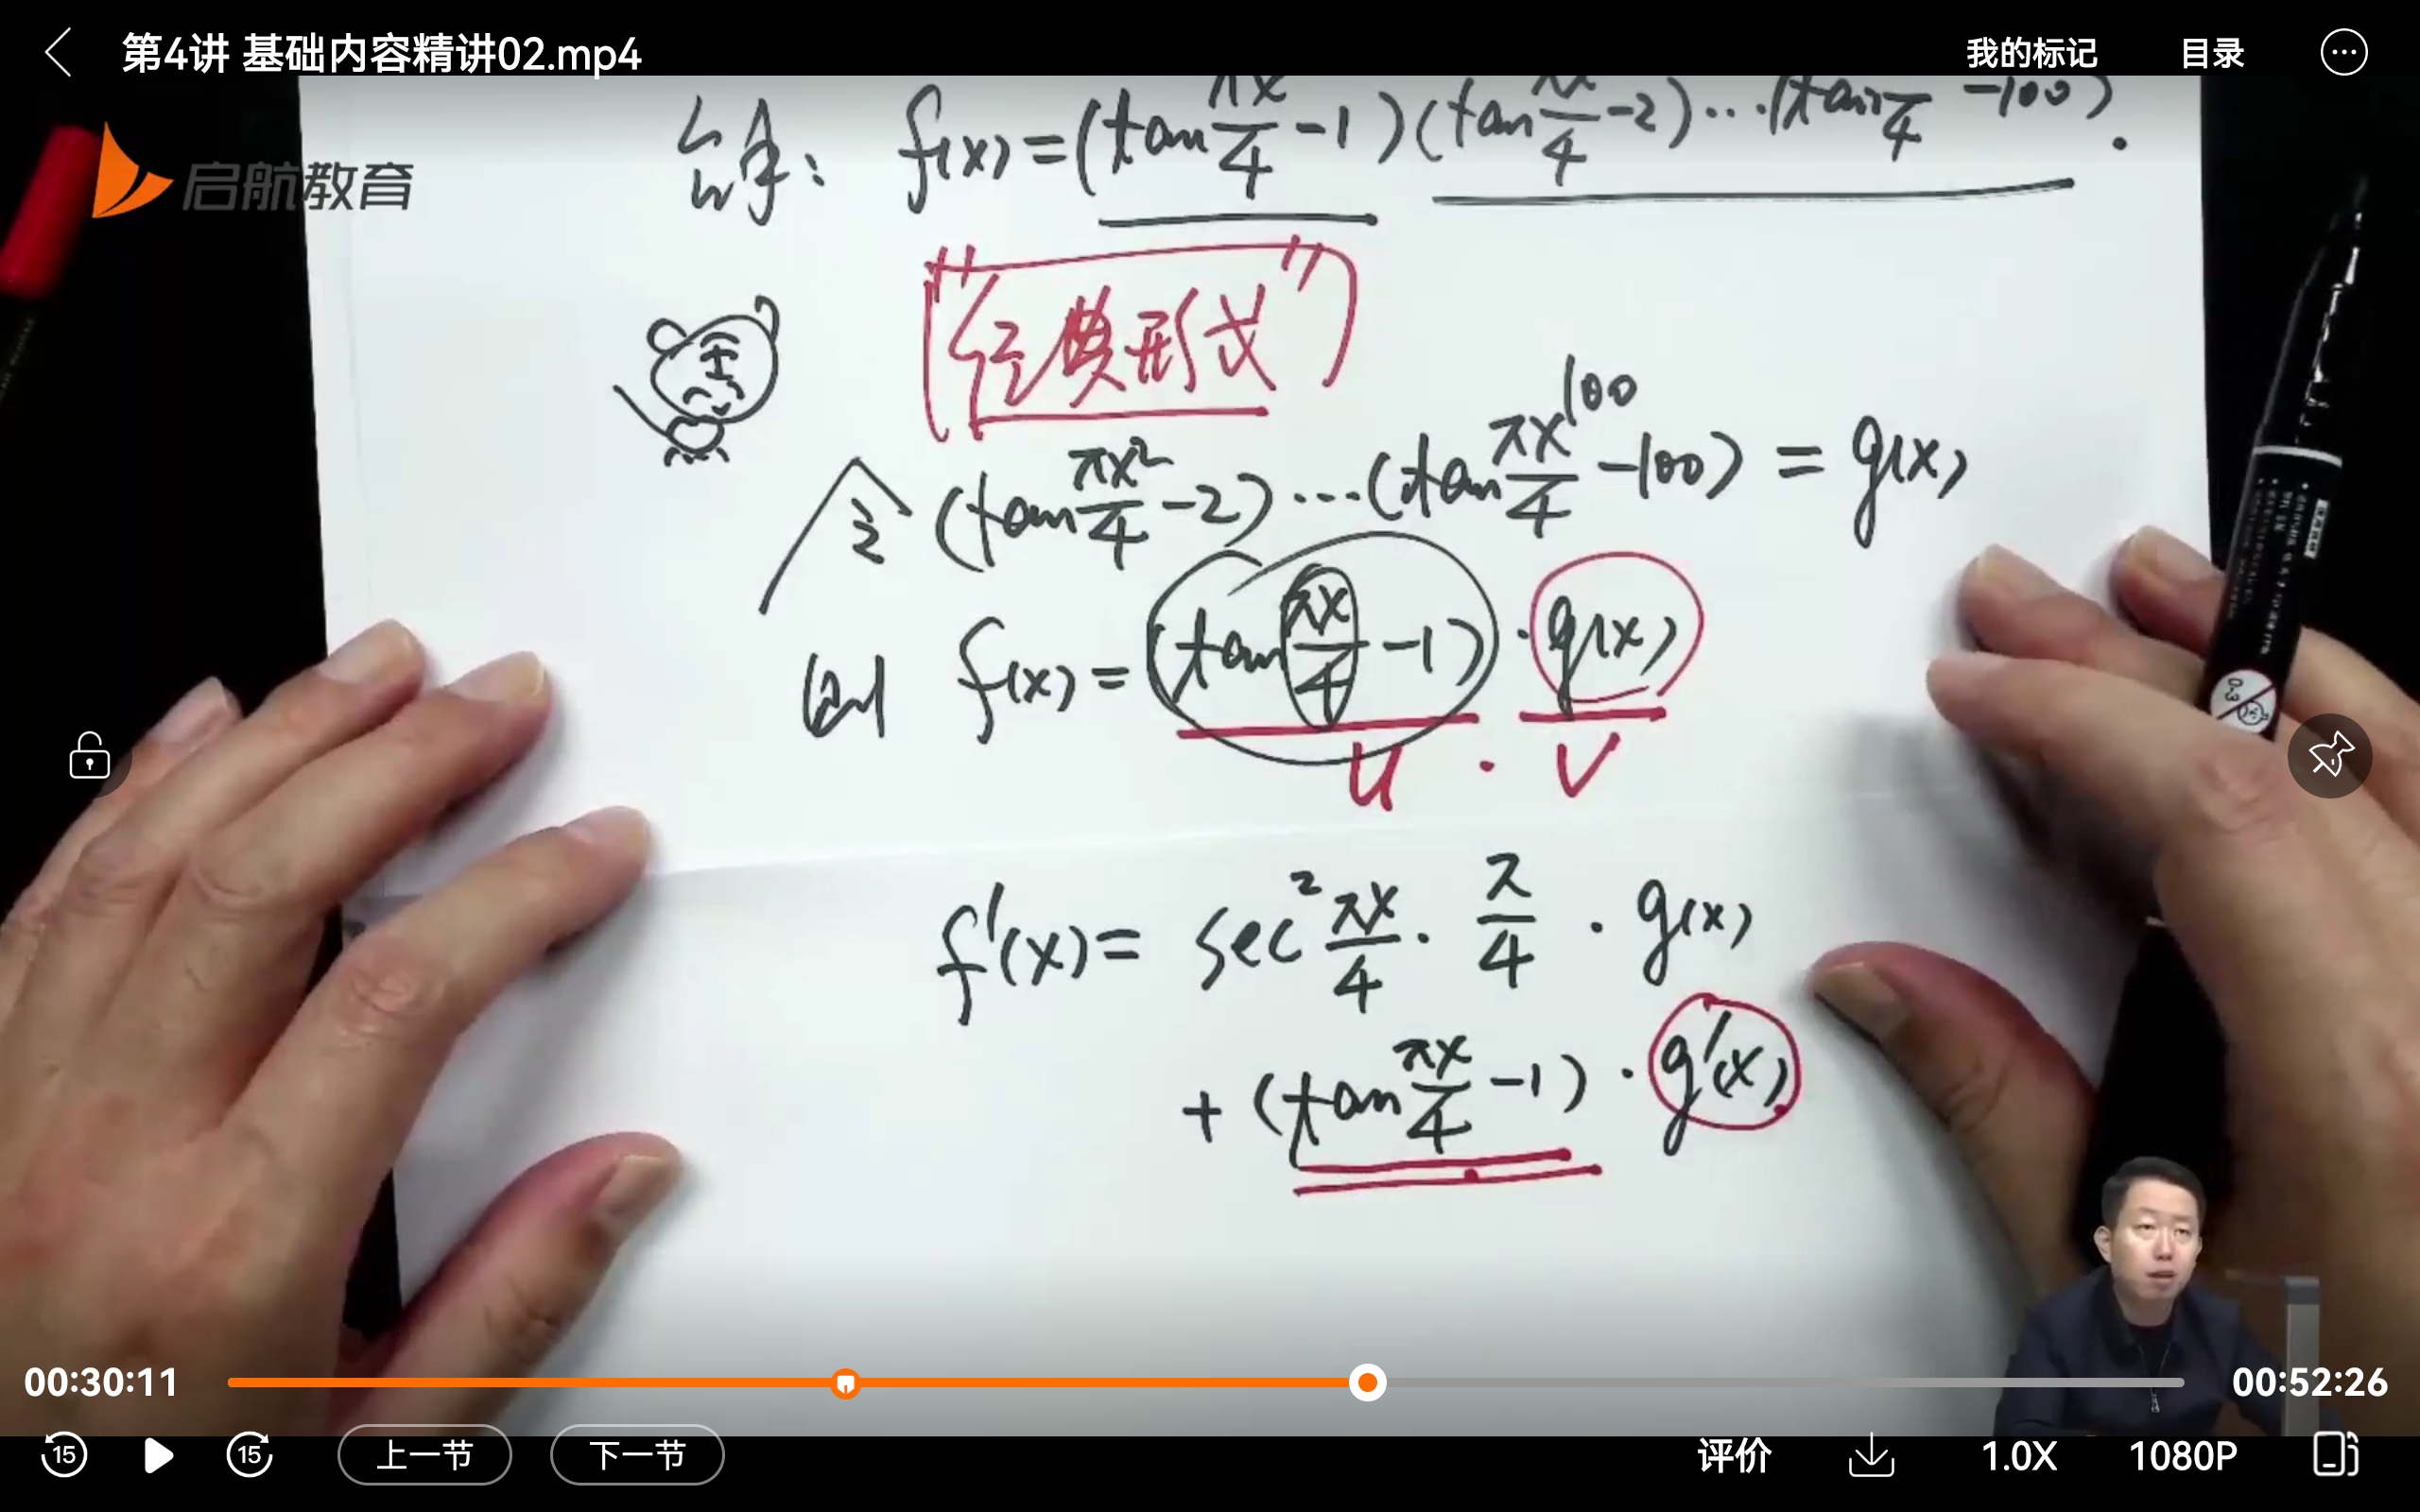 第4讲 基础内容精讲02.mp4
我的标记
目录
启航教育
解: f(x)=(tan πx/4 -1)(tan /4 -2)…(tan /4 -100).
"经典形式"
王
令 (tan πx²/4 -2)…(tan πx¹⁰⁰/4 -100) = g(x)
则 f(x)=(tan πx/4 -1)·g(x)
u · v
f'(x)= sec² πx/4 · π/4 · g(x)
+ (tan πx/4 -1) · g'(x)
00:30:11
00:52:26
15
15
上一节
下一节
评价
1.0X
1080P